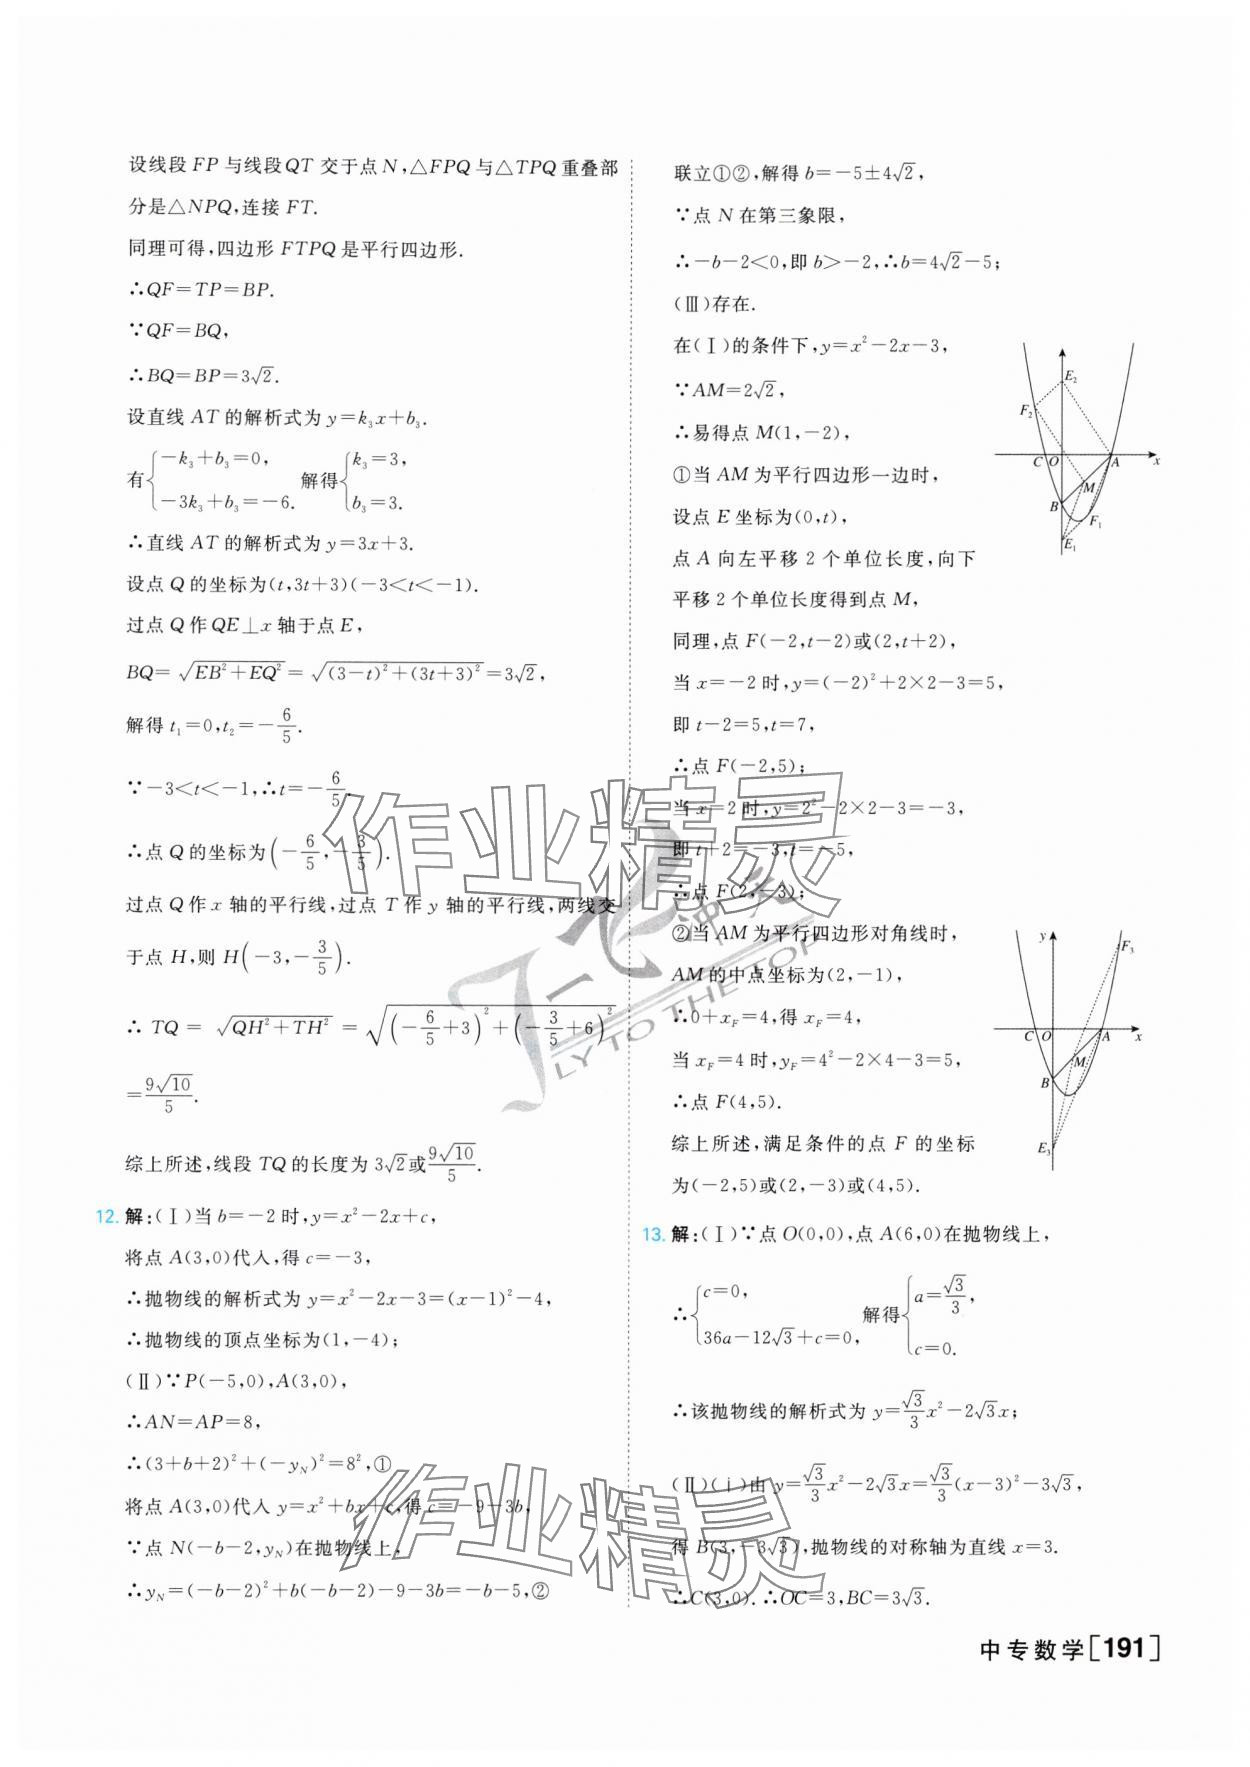 设线段 FP 与线段 QT 交于点 N,△FPQ 与△TPQ 重叠部
分是△NPQ,连接 FT.
同理可得,四边形 FTPQ 是平行四边形.
∴QF=TP=BP.
∵QF=BQ,
∴BQ=BP=3√2.
设直线 AT 的解析式为 y=k₃x+b₃.
有{−k₃+b₃=0, −3k₃+b₃=−6. 解得{k₃=3, b₃=3.
∴直线 AT 的解析式为 y=3x+3.
设点 Q 的坐标为(t,3t+3)(−3<t<−1).
过点 Q 作 QE⊥x 轴于点 E,
BQ=√(EB²+EQ²)=√((3−t)²+(3t+3)²)=3√2,
解得 t₁=0,t₂=−6/5.
∵−3<t<−1,∴t=−6/5.
∴点 Q 的坐标为(−6/5,−3/5).
过点 Q 作 x 轴的平行线,过点 T 作 y 轴的平行线,两线交
于点 H,则 H(−3,−3/5).
∴ TQ = √(QH²+TH²) = √((−6/5+3)²+(−3/5+6)²)
=9√10/5.
综上所述,线段 TQ 的长度为 3√2或9√10/5.
12. 解:(Ⅰ)当 b=−2 时,y=x²−2x+c,
将点 A(3,0)代入,得 c=−3,
∴抛物线的解析式为 y=x²−2x−3=(x−1)²−4,
∴抛物线的顶点坐标为(1,−4);
(Ⅱ)∵P(−5,0),A(3,0),
∴AN=AP=8,
∴(3+b+2)²+(−y_N)²=8²,①
将点 A(3,0)代入 y=x²+bx+c,得 c=−9−3b,
∵点 N(−b−2,y_N)在抛物线上,
∴y_N=(−b−2)²+b(−b−2)−9−3b=−b−5,②
联立①②,解得 b=−5±4√2,
∵点 N 在第三象限,
∴−b−2<0,即 b>−2,∴b=4√2−5;
(Ⅲ)存在.
在(Ⅰ)的条件下,y=x²−2x−3,
∵AM=2√2,
∴易得点 M(1,−2),
①当 AM 为平行四边形一边时,
设点 E 坐标为(0,t),
点 A 向左平移 2 个单位长度,向下
平移 2 个单位长度得到点 M,
同理,点 F(−2,t−2)或(2,t+2),
当 x=−2 时,y=(−2)²+2×2−3=5,
即 t−2=5,t=7,
∴点 F(−2,5);
当 x=2 时,y=2²−2×2−3=−3,
即 t+2=−3,t=−5,
∴点 F(2,−3);
②当 AM 为平行四边形对角线时,
AM 的中点坐标为(2,−1),
∴0+x_F=4,得 x_F=4,
当 x_F=4 时,y_F=4²−2×4−3=5,
∴点 F(4,5).
综上所述,满足条件的点 F 的坐标
为(−2,5)或(2,−3)或(4,5).
E₂
F₂
C O A x
M
B
F₁
E₁
y
F₃
C O A x
M
B
E₃
13. 解:(Ⅰ)∵点 O(0,0),点 A(6,0)在抛物线上,
∴{c=0, 36a−12√3+c=0, 解得{a=√3/3, c=0.
∴该抛物线的解析式为 y=√3/3x²−2√3x;
(Ⅱ)(ⅰ)由 y=√3/3x²−2√3x=√3/3(x−3)²−3√3,
得 B(3,−3√3),抛物线的对称轴为直线 x=3.
∴C(3,0).∴OC=3,BC=3√3.
中专数学[191]
作业精灵
作业精灵
一飞冲天
FLY TO THE TOP